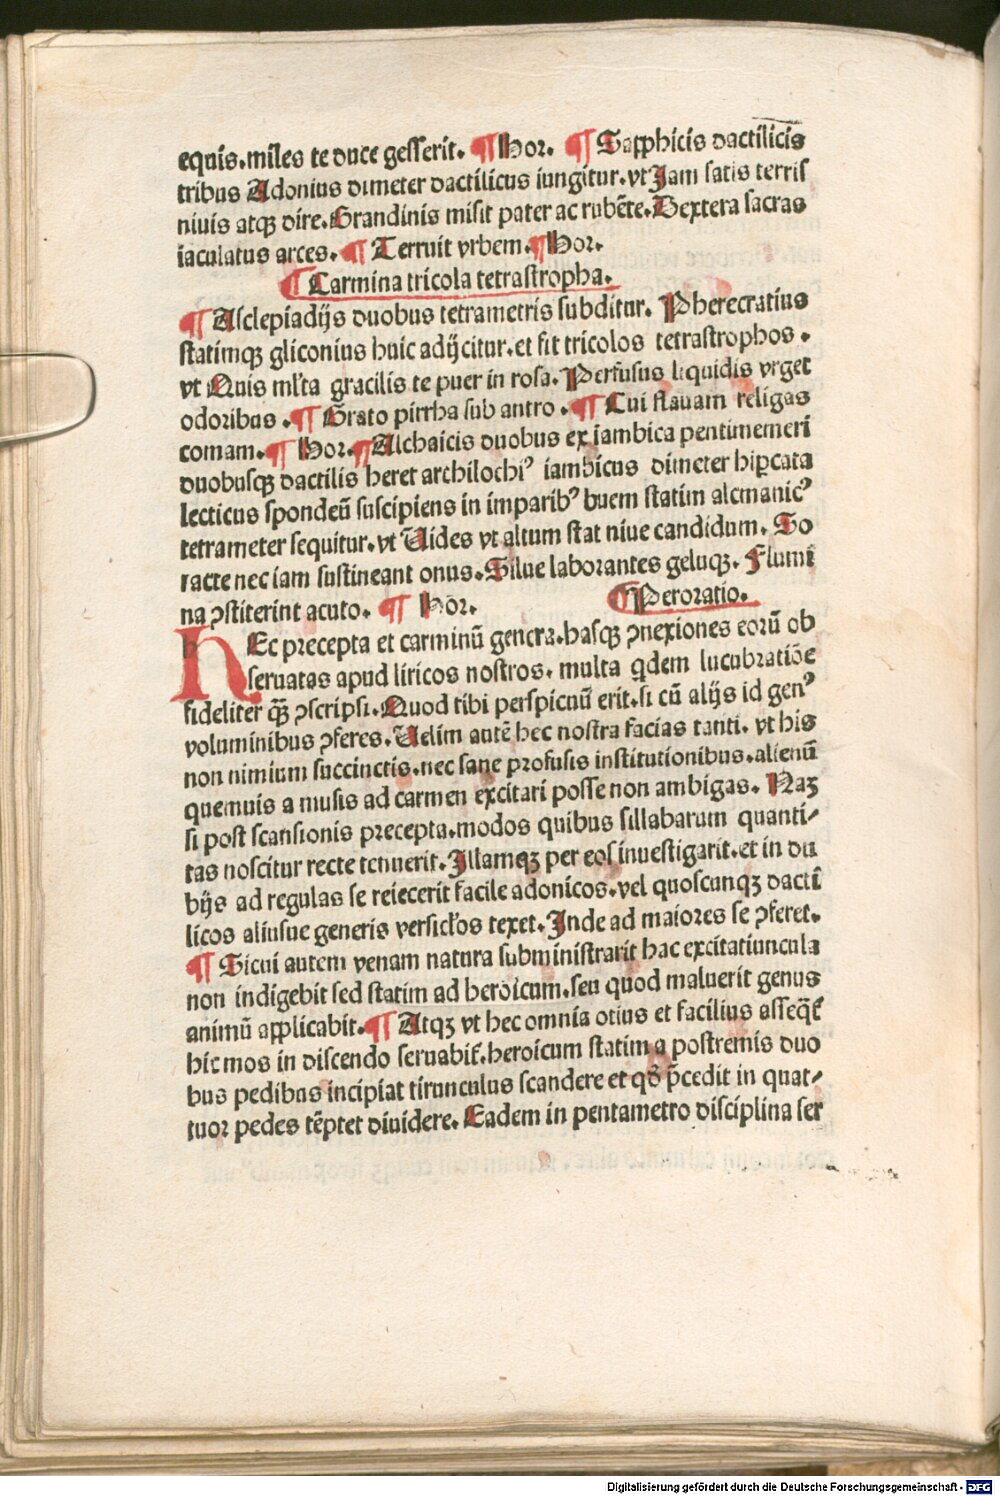 equis.miles te duce gesserit. ¶ Hor. ¶ Sapphicis dactilicis
tribus Adonius dimeter dactilicus iungitur.vt Jam satis terris
niuis atqꝫ dire.Grandinis misit pater ac rubēte.Dextera sacras
iaculatus arces. ¶ Terruit vrbem.¶ Hor.
¶ Carmina tricola tetrastropha.
¶ Asclepiadijs duobus tetrametris subditur. Pherecratius
statimqꝫ gliconius huic adijcitur.et fit tricolos tetrastrophos .
vt Quis ml'ta gracilis te puer in rosa.Perfusus liquidis vrget
odoribus .¶ Grato pirrha sub antro .¶ Cui flauam religas
comam.¶ Hor.¶ Alchaicis duobus ex iambica pentimemeri
duobusqꝫ dactilis heret archilochiꝰ iambicus dimeter hiꝑcata
lecticus spondeū suscipiens in imparibꝰ buem statim alcmanicꝰ
tetrameter sequitur.vt Uides vt altum stat niue candidum. So
racte nec iam sustineant onus.Silue laborantes geluqꝫ. Flumi
na ꝯstiterint acuto. ¶ Hor.
¶ Peroratio.
HEc precepta et carminū genera.hasqꝫ ꝯnexiones eorū ob
seruatas apud liricos nostros. multa qdem lucubratiōe
fideliter qꝫ̄ ꝯscripsi.Quod tibi perspicuū erit.si cū alijs id genꝰ
voluminibus ꝯferes.Uelim autē hec nostra facias tanti. vt his
non nimium succinctis.nec sane profusis institutionibus.alienū
quemuis a musis ad carmen excitari posse non ambigas. Naꝫ
si post scansionis precepta.modos quibus sillabarum quanti/
tas noscitur recte tenuerit.Jllamqꝫ per eos inuestigarit.et in du
bijs ad regulas se reiecerit facile adonicos.vel quoscunqꝫ dacti
licos aliusue generis versicl'os texet.Jnde ad maiores se ꝯferet.
¶ Sicui autem venam natura subministrarit hac excitatiuncula
non indigebit sed statim ad heroicum.seu quod maluerit genus
animū applicabit.¶ Atqꝫ vt hec omnia otius et facilius asseq̄t'
hic mos in discendo seruabit'.heroicum statim a postremis duo
bus pedibus incipiat tirunculus scandere et qđ p̄cedit in quat/
tuor pedes tēptet diuidere. Eadem in pentametro disciplina ser
Digitalisierung gefördert durch die Deutsche Forschungsgemeinschaft - DFG